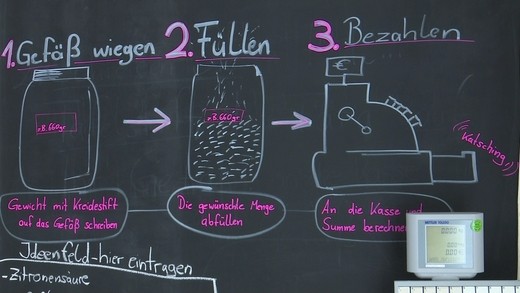 1. Gefäß wiegen
2. Füllen
3. Bezahlen
€
Katsching,
Gewicht mit Kreidestift
auf das Gefäß schreiben
Die gewünschte Menge
abfüllen
An die Kasse und
Summe berechnen
Ideenfeld-hier eintragen
-Zitronensäure